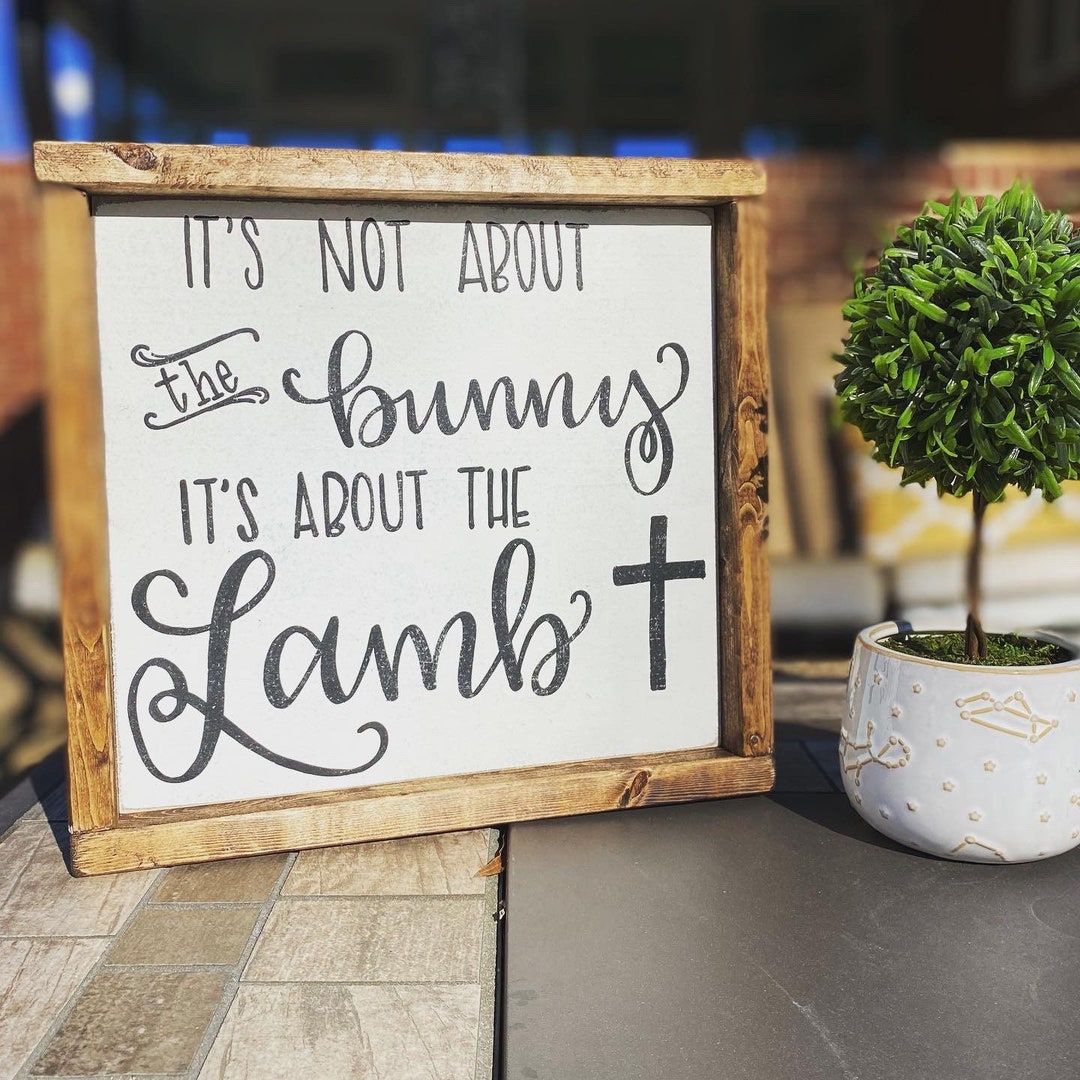 IT'S NOT ABOUT
the bunny
IT'S ABOUT THE
Lamb